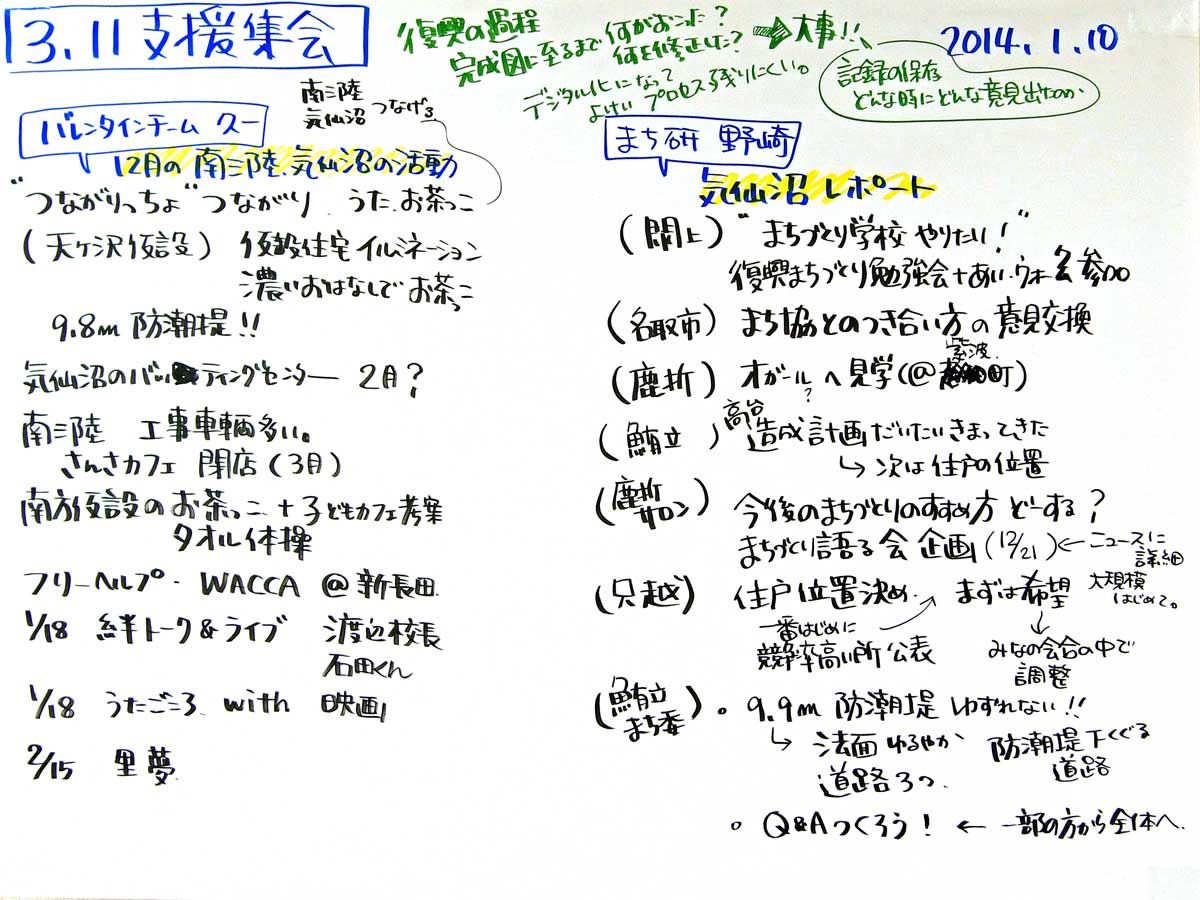 3.11支援集会
復興の過程
完成図に至るまで 何がおこった?
何を修正した? ➡大事!!
デジタル化になって
よけい プロセス残りにくい。
記録の保存
どんな時にどんな意見出たのか
2014.1.10
南三陸
気仙沼 つなげる
バレンタインチーム クー
12月の南三陸、気仙沼の活動
"つながりっちょ" つながり、うた、お茶っこ
(天ヶ沢仮設) 仮設住宅イルミネーション
濃いおはなしでお茶っこ
9.8m 防潮堤!!
気仙沼のバッティングセンター 2月?
南三陸 工事車輌多い。
さんさカフェ 閉店(3月)
南方仮設のお茶っこ+子どもカフェ考案
タオル体操
フリーヘルプ・WACCA @新長田
1/18 絆トーク&ライブ 渡辺校長
石田くん
1/18 うたごころ with 映画
2/15 里夢
まち研 野崎
気仙沼レポート
(閖上) "まちづくり学校 やりたい!"
復興まちづくり勉強会+あい・ウォーク参加
(名取市) まち協とのつき合い方の意見交換
(鹿折) オガールへ見学(@紫波町)
?
(鮪立) 高台造成計画だいたいきまってきた
↳次は住戸の位置
(鹿折サロン) 今後のまちづくりのすすめ方 どーする?
まちづくり語る会 企画(12/21)←ニュースに詳細
(只越) 住戸位置決め まずは希望
大規模はじめて。
一番はじめに
競争率高い所公表
みなの会合の中で
調整
(鮪立まち委)。9.9m 防潮堤 ゆずれない!!
↳法面ゆるやか
道路3つ
防潮堤下くぐる
道路
。Q&Aつくろう! ← 一部の方から全体へ